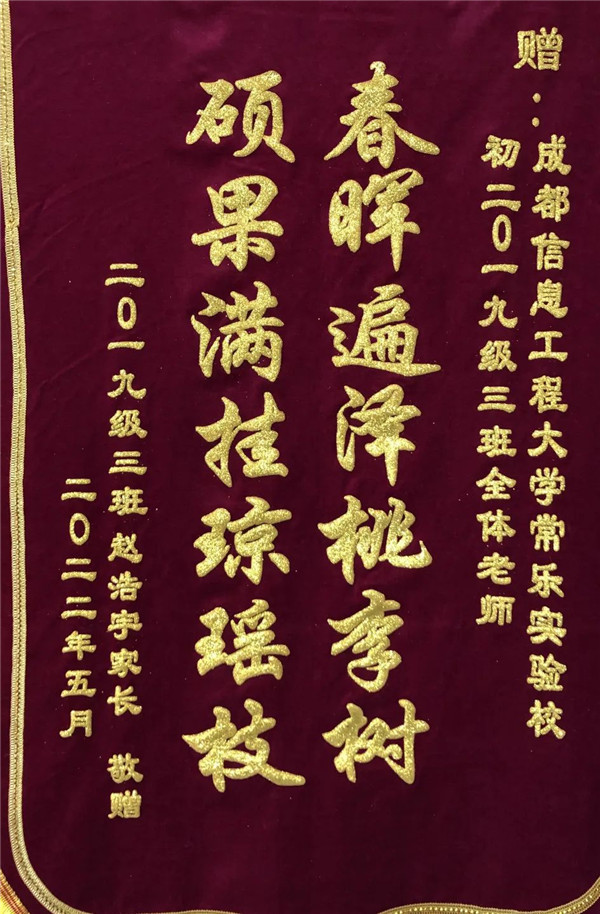 赠：成都信息工程大学常乐实验校
初二〇一九级三班全体老师
春晖遍泽桃李树
硕果满挂琼瑶枝
二〇一九级三班赵浩宇家长 敬赠
二〇二二年五月